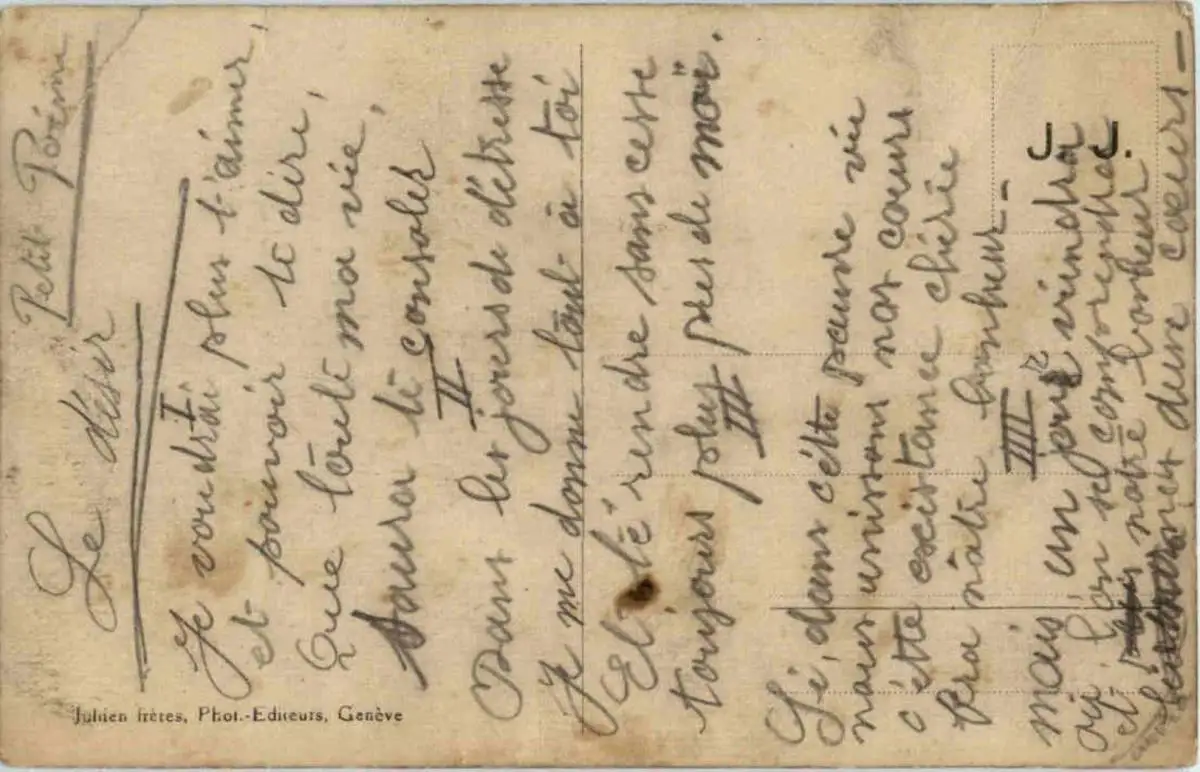 Petit Poème
Le désir
I
Je voudrai plus t'aimer,
et pouvoir te dire,
Que toute ma vie,
Saura te consoler
II
Dans les jours de détresse
Je me donne tout à toi
Et té rendre sans cesse
toujours plus pres de moi.
III
Si, dans cétte pauvre vie
nous unissons nos coeurs
cétte existance chérie
fera nôtre bonheur-
IIII
mais, un jour viendra
où, l'on se comprendra
et notre bonheur
deux coeurs-
J. J.
Julien frères, Phot.-Editeurs, Genève